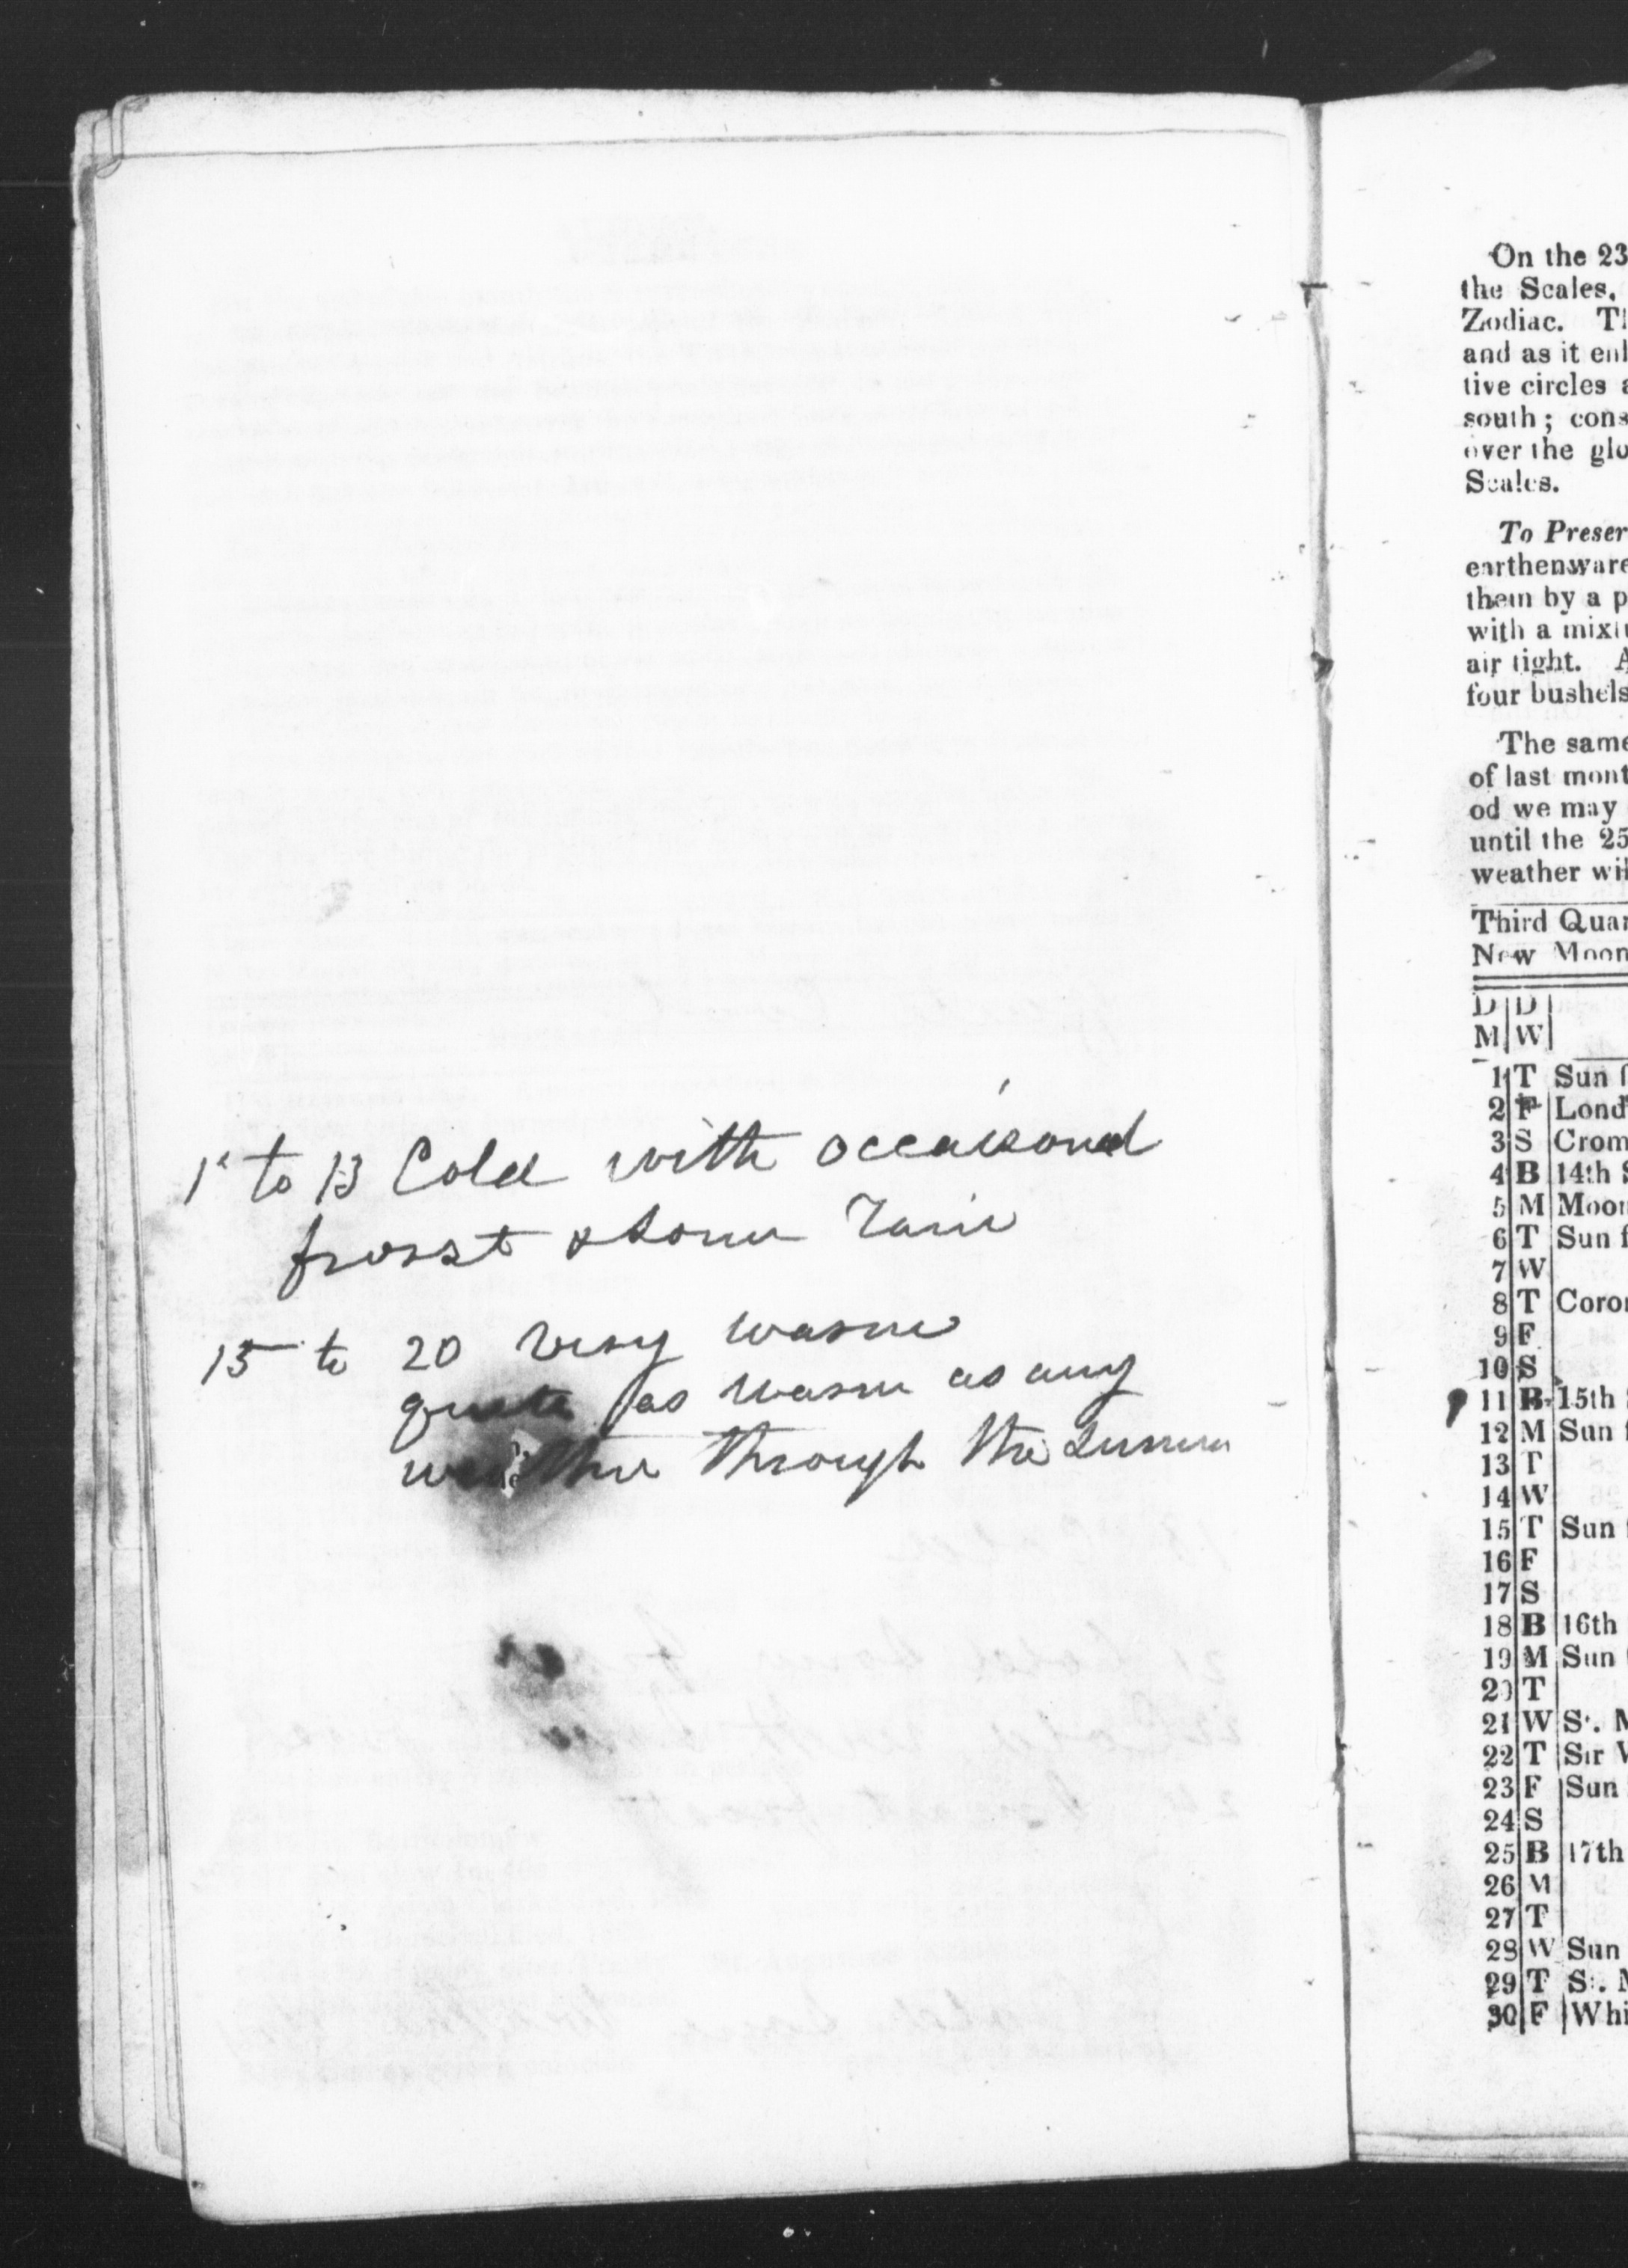 1 to 13 Cold with occaisonal
frosst & some Rain
15 to 20 very warm
quite as warm as any
weather through the Summer
On the 23
the Scales,
Zodiac.
and as it
tive circles
south; cons
over the glo
Scales.
To Preser
earthenware
them by a p
with a mixtu
air tight. A
four bushels
The same
of last mont
od we may
until the 25
weather wil
Third Quar
New Moon
D D
M W
1 T Sun
2 F Lond
3 S Crom
4 B 14th S
5 M Moon
6 T Sun f
7 W
8 T Coro
9 F
10 S
11 B 15th S
12 M Sun f
13 T
14 W
15 T Sun
16 F
17 S
18 B 16th
19 M Sun
20 T
21 W St. M
22 T Sir W
23 F Sun
24 S
25 B 17th
26 M
27 T
28 W Sun
29 T St. M
30 F Whi